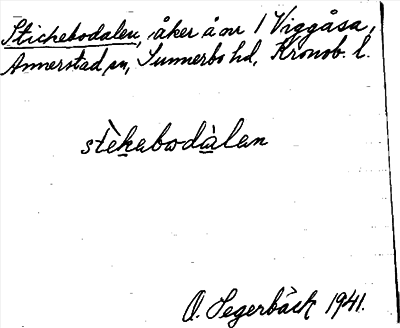 Stickebodalen, åker å nr 1 Viggåsa,
Annerstad sn, Sunnerbo hd, Kronob. l.
stèkabωdàlan
O. Segerbäck 1941.